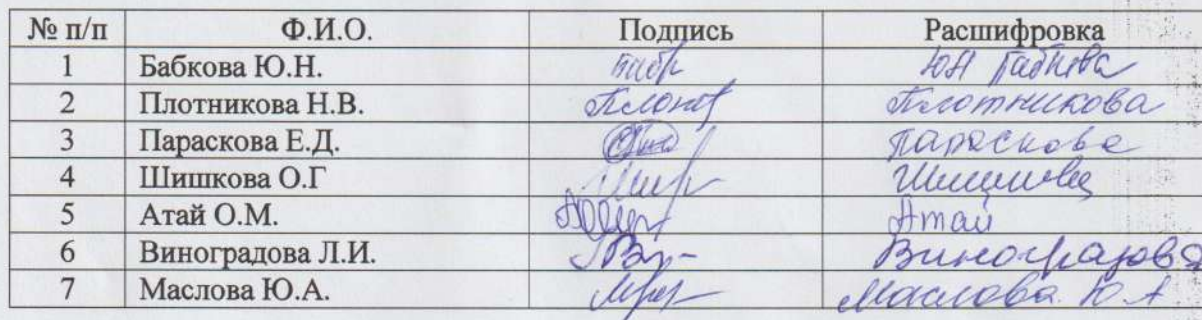 № п/п Ф.И.О. Подпись Расшифровка
1 Бабкова Ю.Н. ЮН Бабкова
2 Плотникова Н.В. Плотникова
3 Параскова Е.Д. Параскова
4 Шишкова О.Г
5 Атай О.М. Атай
6 Виноградова Л.И. Виноградова
7 Маслова Ю.А. Маслова Ю А.